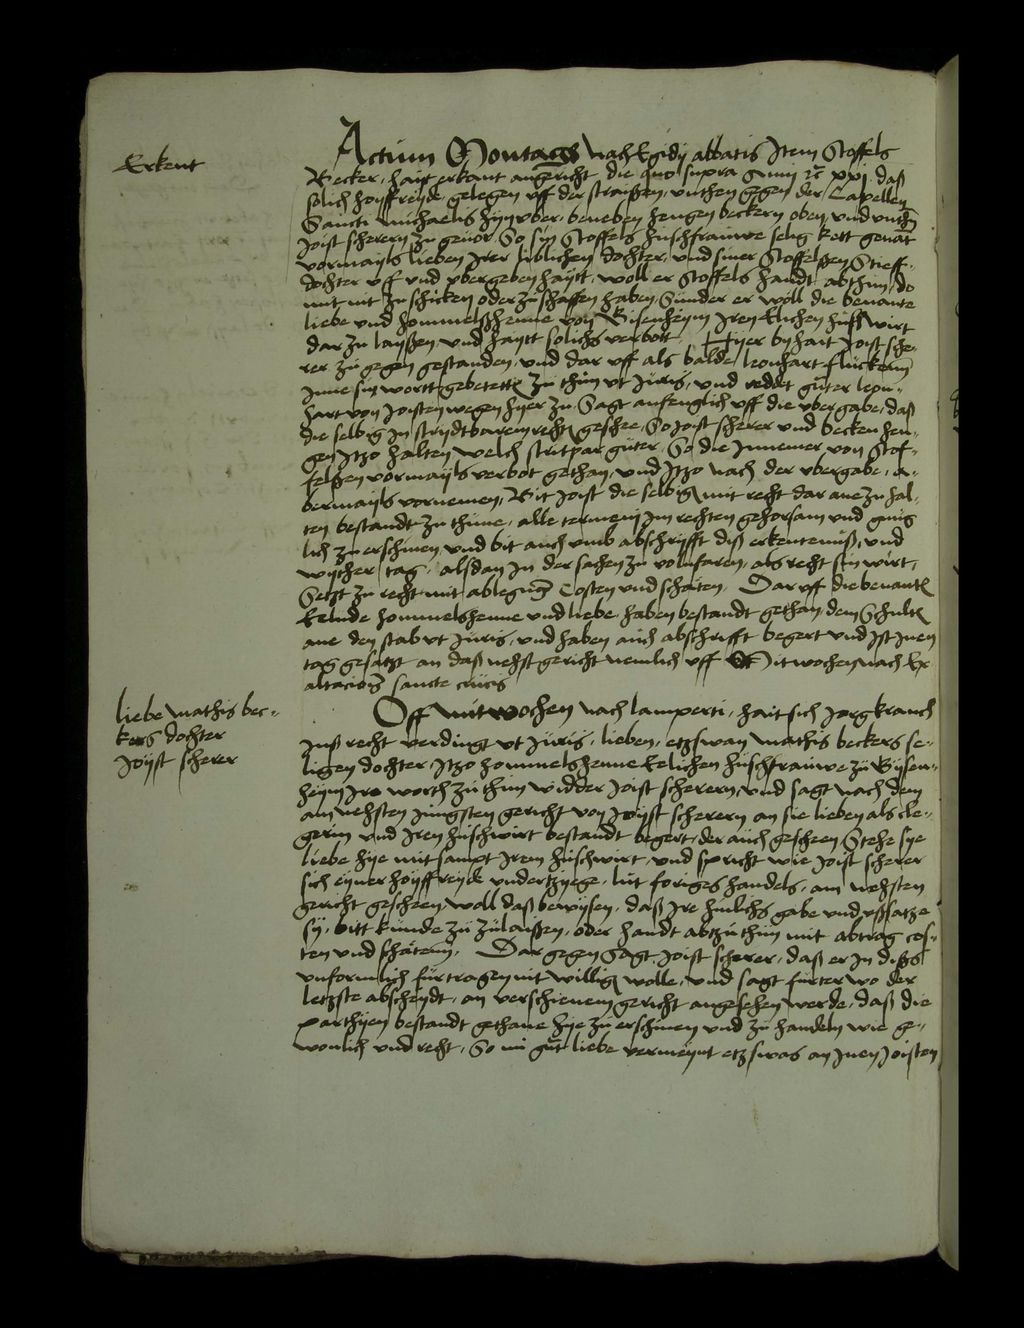 Erkent
Actum Montags nach Egidij abbatis Item Stoffels
Becker, hait erkant angericht die quo supra Anno &c xxj. daß
solich hoyffreyde, gelegen uff der straissen, unthen gegen der Capellen
Sancti Michaelis hynuber, beneben hengen beckern oben, und unthen
Joist scherern zu gehor, So syn Stoffels huschfrauwe selig kett genant
vormayls lieben Irer liblichen dochter, und siner Stoffelßen Stieff-
dochter uff und ubergeben haytt, woll er Stoffels handt abthun, do
mit nit zu schicken oder zu schaffen haben, Sunder er woll die benante
liebe und hommelßhenne von Bisenheym Iren Elichen hußwirt
dar zu layßen, und haytt solichs verbott Hyer by hait Joist sche-
rer zu gegen gestanden, und dar uff als balde leonhart fluckern
Inne sin wortt gebetten zu thun ut Juris, und reddet guter leon-
hart von Joisten wegen hyer zu, Sagt anfenglich uff die ubergabe, daß
die selbig In strydtbarem rechten geschee, So Joist scherer und becken hen-
gen Itzo halten welch stritpar guter, So die Innemer von Stof-
felßen vormayls verbot gethan, und Itzo nach der ubergabe, a-
bermayls vornemen, Bit Joist die selbigen mit recht dar ane zu hal-
ten bestandt zu thune, alle termeny im rechten gehorsam und gnug
lich zu erschinen, und bit auch umb abschrifft diß erkentenuß, und
wyther tag, alsdan In der sachen zu volnfaren, als recht sin wirt,
Setzt zu recht mit ablegung Costen und schaiten. Dar uff die benanten
Eelude hommelshenne und liebe haben bestandt gethan, dem Schulten
ane den stab ut Juris, und haben auch abschrifft begert und Ist Inen
tag gesatzt an daß nehst gericht nemlich uff Mitwochen nach Ex
altacionis sancte crucis
liebe mathis bec-
kers dochter
Joyst scherer
Off mitwochen nach lamperti, hait sich Jorg kranch
Inß recht verdingt ut Juris, lieben, etzswan mathis beckers se-
ligen dochter, Itzo hommelshenne Eelichen huschfrauwe zu Bysen-
heym Ire worth zu thun widder Joist scherern, und sagt nach dem
am nehsten Jungsten gericht von Joyst scherern an sie lieben als cle-
gerin und Iren huschwirt bestandt begert, der auch gescheen Stehe sye
liebe hye mit sampt Irem huschwirt, und spricht wie Joist scherer
sich eyner hoyffreyde undertzyege, lut foriges handels, am nehsten
gericht gescheen, woll daß bewysen, daß Ire hinlichs gabe und ußsatze
sy, bitt kunde zu zulaißen, oder handt abtzuthun mit abtrag cos-
ten und schaitenn. Dar gegen sagt Joist scherer, daß er In dißs
unformlich furtragen nit willigen wolle, und sagt furter wo der
letzste abscheydt, an verschienem gericht angesehen werde, daß die
parthyen bestandt gethane hye zu erschinen und zu handeln wie ge-
wonlich und recht, So nu gut liebe vermeynt etzswas an Inen Joisten